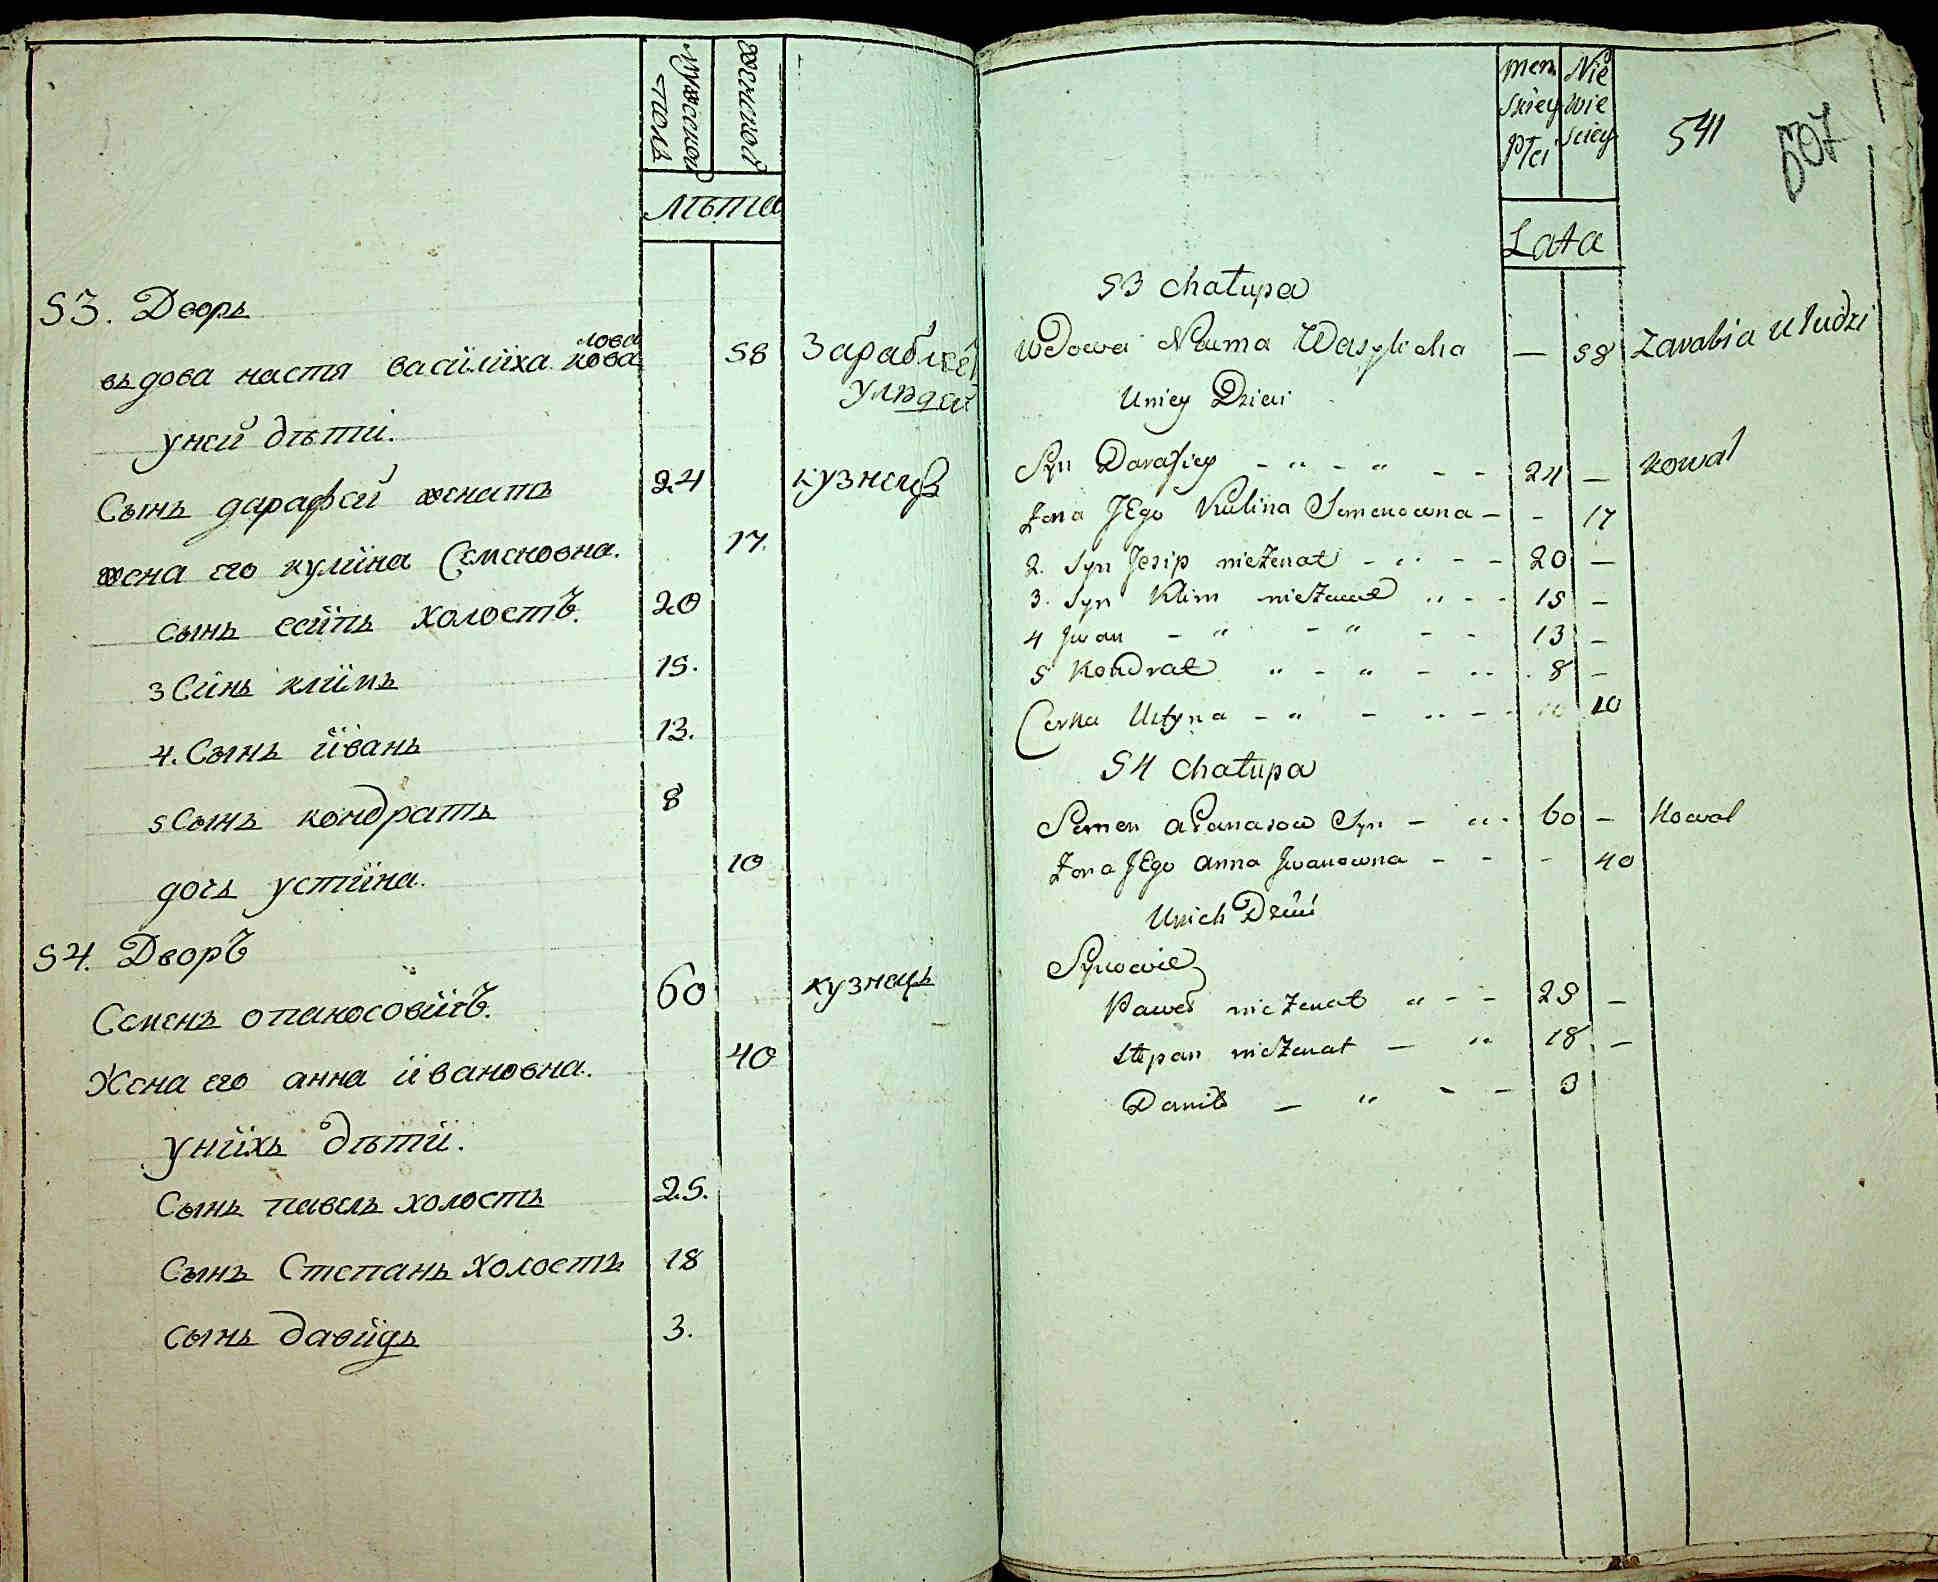 мужеской
полъ
женской
лѣта
53. Дворъ
въдова настя василиха кова
лова
58
Зарабляе
у людей
у ней дѣти.
Сынъ дарафей женатъ 24 кузнецъ
жена его кулина Семеновна. 17.
сынъ есипъ холостъ. 20
3 Синъ климъ 15.
4. Сынъ иванъ 13.
5 Сынъ кондратъ 8
дочь устина. 10
54. Дворъ
Семенъ опанасовичъ. 60 кузнецъ
Жена его анна ивановна. 40
у нихъ дѣти.
Сынъ павелъ холостъ 25.
Сынъ Степанъ холостъ 18
сынъ давидъ 3.
Men
skiey
Płci
Nie
wie
sciey
541
507
Lata
53 chałupa
Wdowa Nauma Wasylicha — 58 Zarabia u ludzi
U niey Dzieci
Syn Darafiey - " - " - - 24 — Kowal
Żona JEgo Kulina Semenowna - - 17
2. Syn Jesip nieżenat - " - - 20 —
3. Syn Klim nieżenat " - - 15 -
4 Jwan - " - " - - 13 -
5 Kondrat " - " - " 8 -
Corka Ustyna - " - " - - 10
54 chałupa
Semen aFanasow Syn - " - 60 - Kowal
Żona JEgo anna Jwanowna - - - 40
U nich Dzieci
Synowie
Paweł nieżenat " - - 25 -
Stepan nieżenat — " 18 -
Daniło — " - - 3